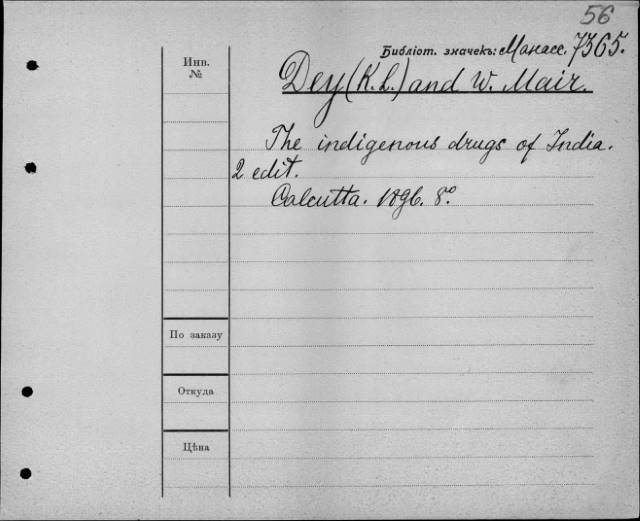 56
Библіот. значекъ: Манасс. 7365.
Инв.
№
Dey (K. L.) and W. Mair.
The indigenous drugs of India.
2 edit.
Calcutta. 1896. 8°.
По заказу
Откуда
Цѣна